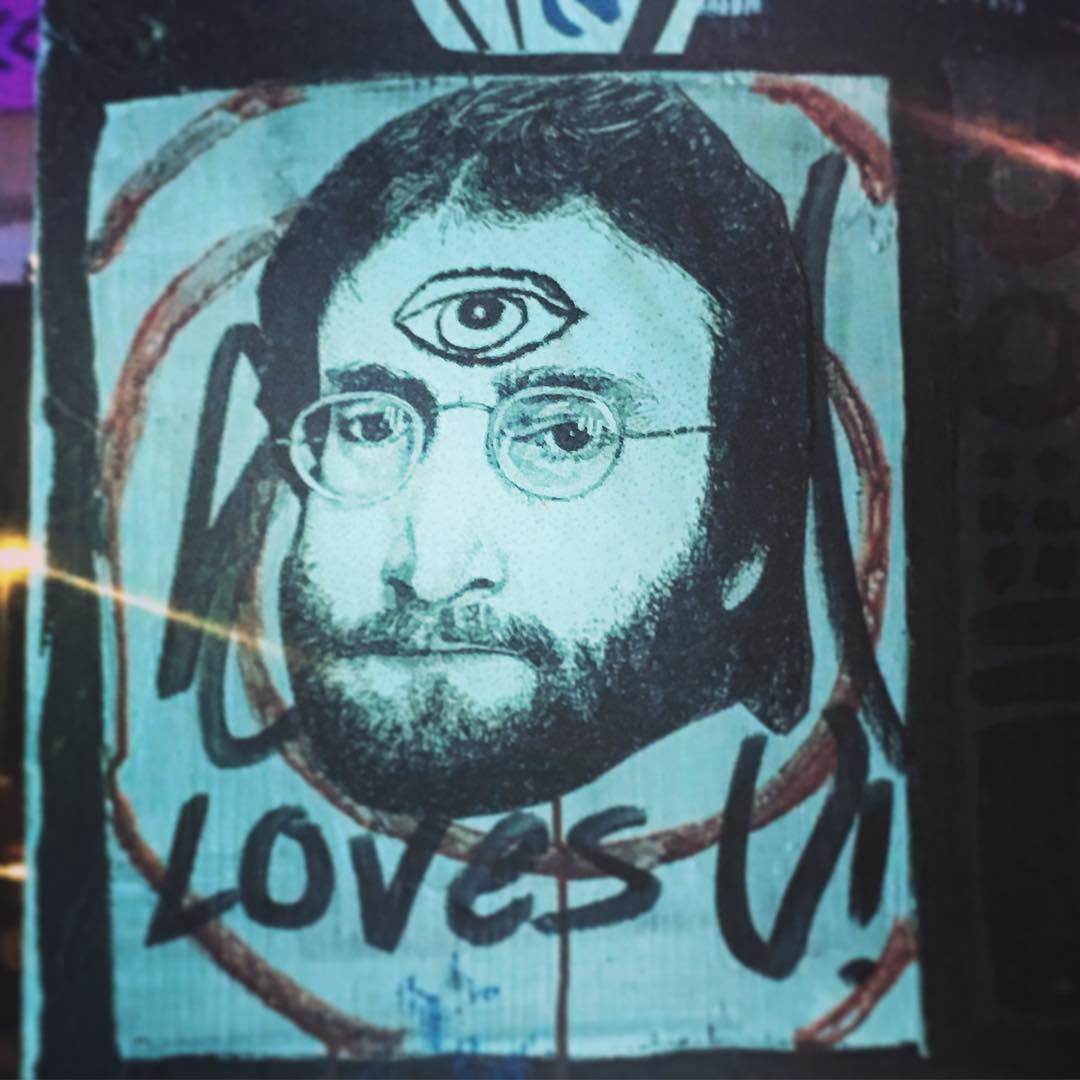 Loves U!